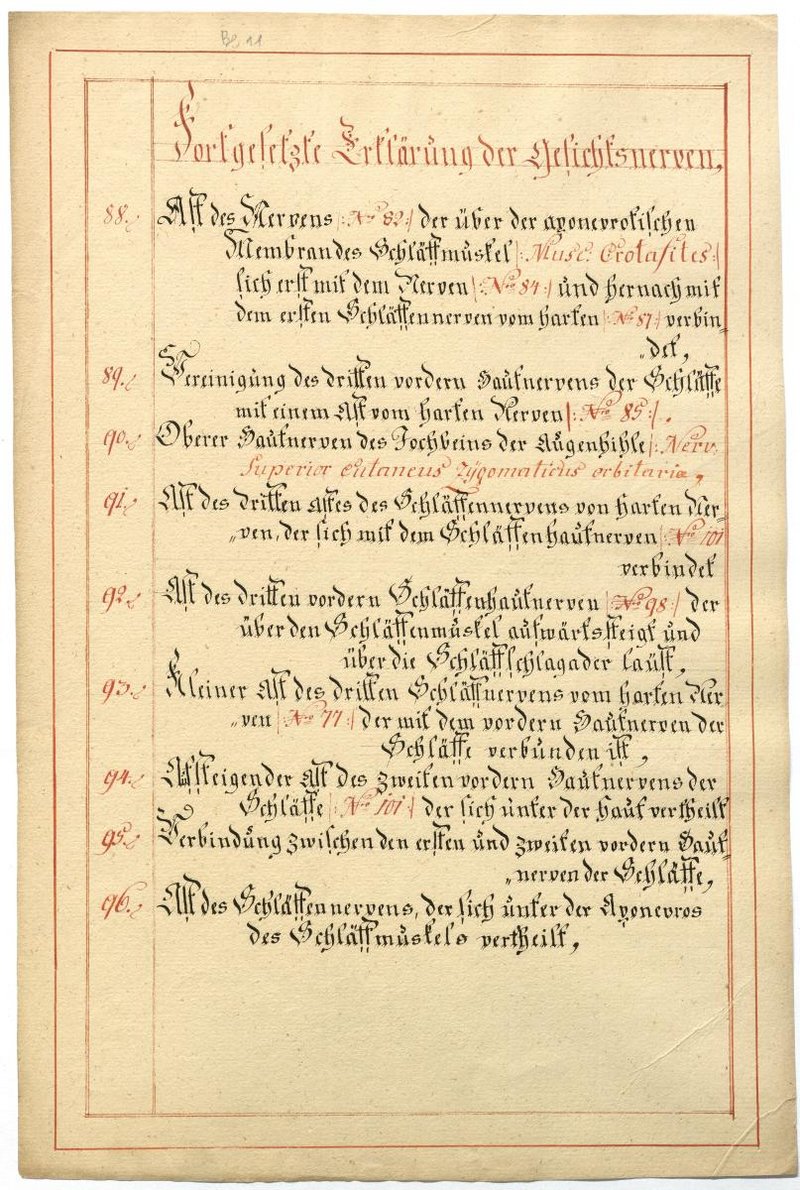 Bl 11
Fortgesetzte Erklärung der Gesichtsnerven,
88. Ast des Nervens |: No 82 :| der über der aponevrotischen
Membran des Schläffmuskel |: Musc: Crotafites :|
sich erst mit dem Nerven |: No 84 :| und hernach mit
dem ersten Schläffennerven vom harten |: No 87 :| verbin„
„det,
89. Vereinigung des dritten vordern Hautnervens der Schläffe
mit einem Ast vom harten Nerven |: No 85 :| .
90. Oberer Hautnerven des Jochbeins der Augenhihle |: Nerv:
Superior cutaneus Zygomaticus orbitariae,
91. Ast des dritten Astes des Schläffennervens von harten Ner„
„ven, der sich mit dem Schläffenhautnerven |: No 101
verbindet
92. Ast des dritten vordern Schläffenhautnerven |: No 98 :| der
über den Schläffenmuskel aufwärts steigt und
über die Schläffschlagader lauft,
93. Kleiner Ast des dritten Schläffnervens vom harten Ner
„ven |: No 77 :| der mit dem vordern Hautnerven der
Schläffe verbunden ist,
94. Aufsteigender Ast des zweiten vordern Hautnervens der
Schläffe |: No 101 :| der sich unter der Haut vertheilt
95. Verbindung zwischen den ersten und zweiten vordern Haut„
„nerven der Schläffe,
96. Ast des Schläffennervens, der sich unter der Aponevros
des Schläffmuskels vertheilt,